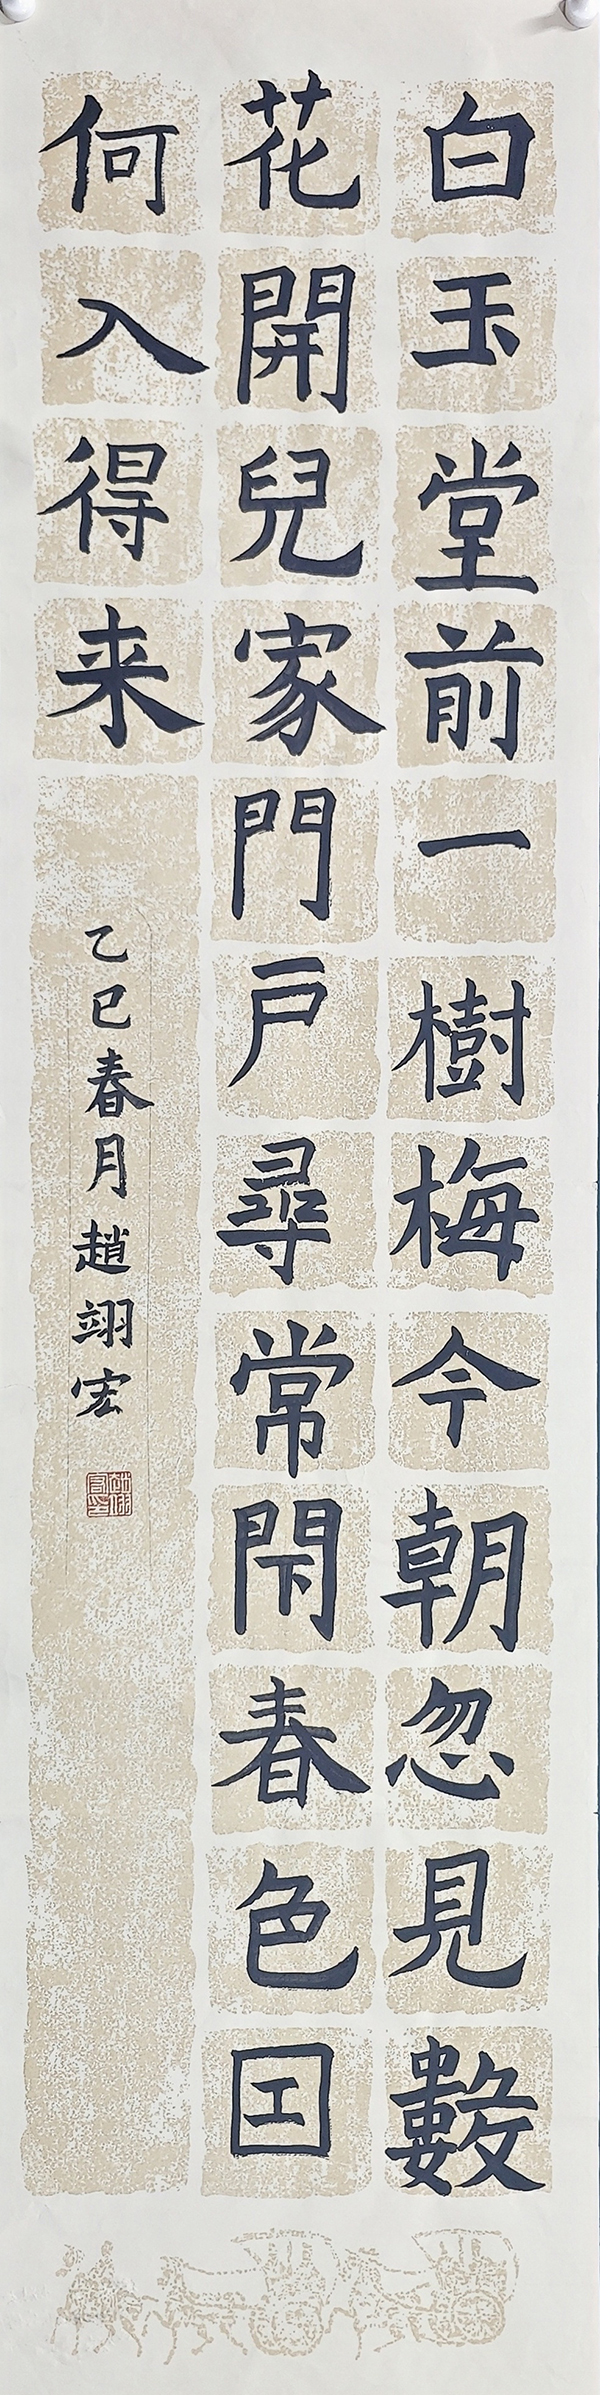 白玉堂前一樹梅今朝忽見數
花開兒家門戸尋常閇春色囙
何入得来
乙巳春月趙翊宏